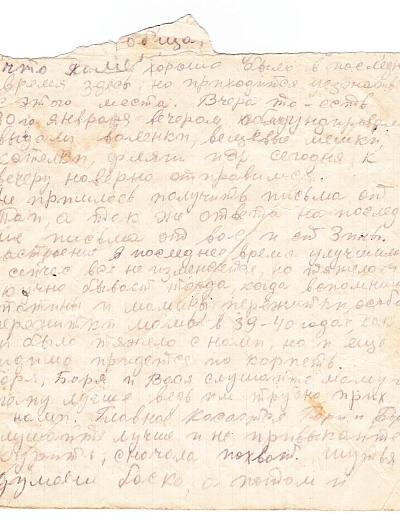 что хоть хорошо было в последн
время здесь, но приходится уезжать
с этого места. Вчера то-есть
30го января вечером обмундировали
выдали валенки, вещевые мешки,
котелки, фляги пдр, сегодня к
вечеру наверно отправимся.
не пришлось получить письма от
Тап, а так же ответа на послед
ие письма от вас и от Зины.
астроение в последнее время улучшило
и сейчас все не изменяется, но тяжело
ично бывает тогда, когда вспомни
татины и мамины пережитки, особо
пережитки мамы в 39-40 годах, как
й было тяжело с нами, но и еще
идимо придется по корпеть.
оря, Боря и Вася слушайте маму и
папу лучше ведь им трудно прих
нами. Главное касается и Бор
слушайте лучше и не привыкайте
курить, сначала
думаеш баско, а потом и